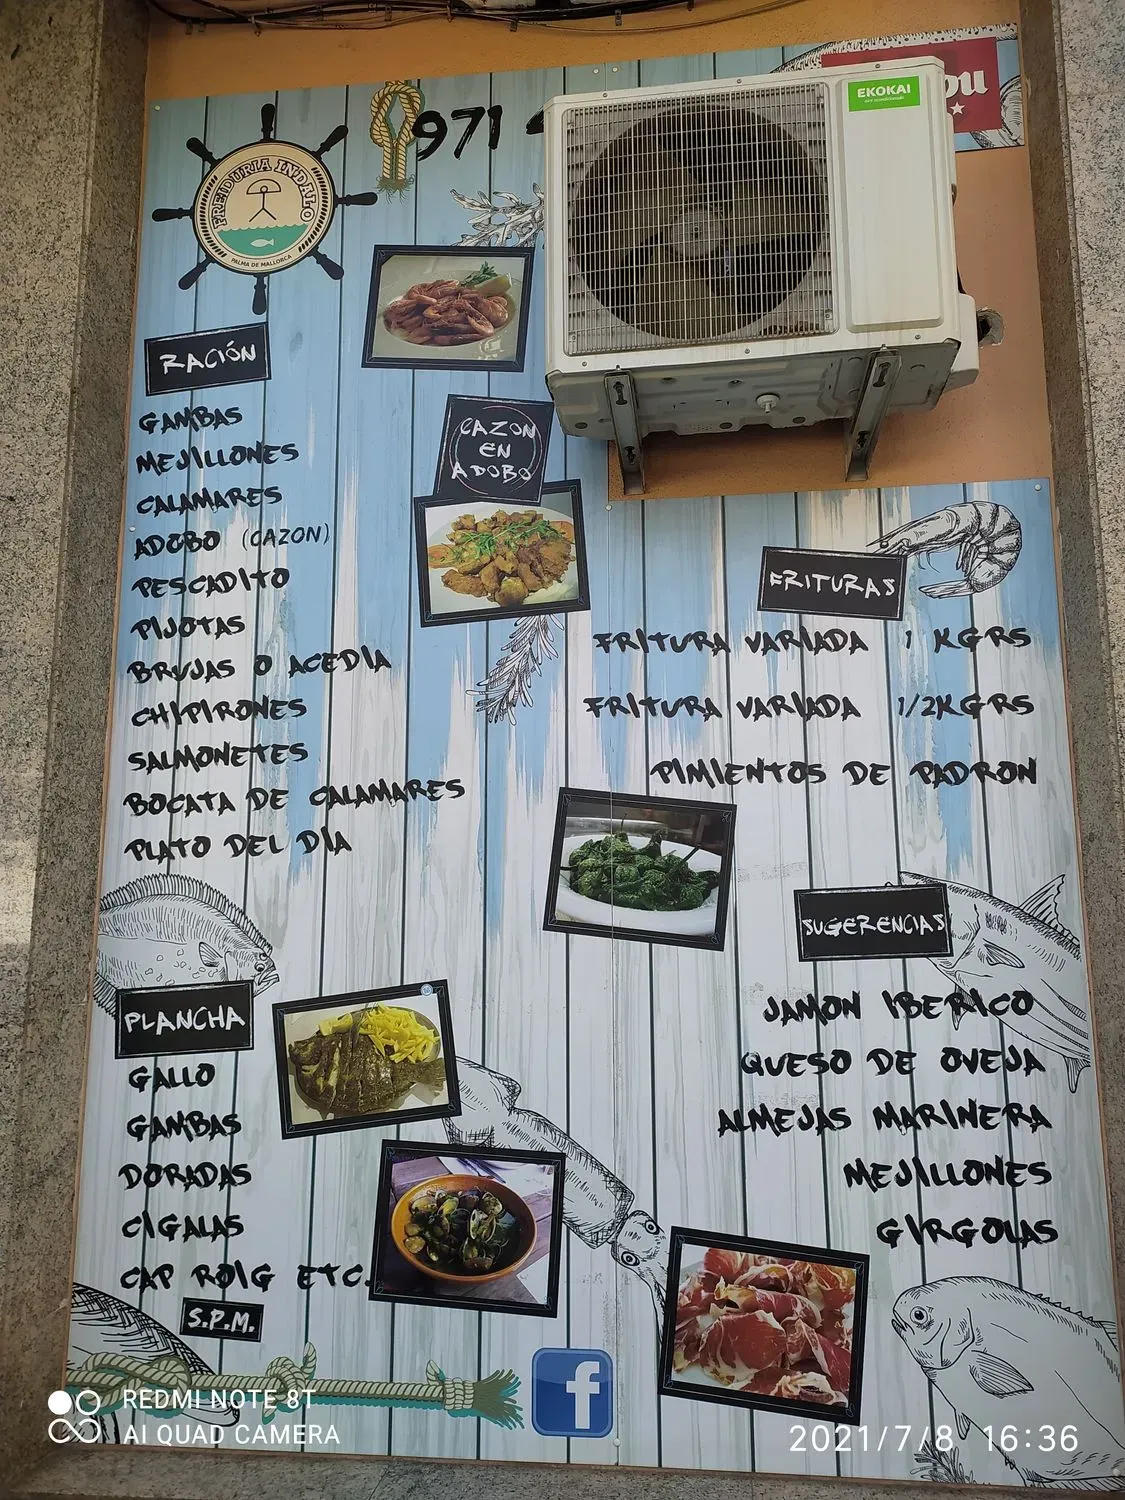 971
EKOKAI
FREIDURIA INDALO
PALMA DE MALLORCA
RACIÓN
GAMBAS
MEJILLONES
CALAMARES
ADOBO (CAZON)
PESCADITO
PIJOTAS
BRUJAS O ACEDIA
CHIPIRONES
SALMONETES
BOCATA DE CALAMARES
PLATO DEL DÍA
CAZON
EN
ADOBO
FRITURAS
FRITURA VARIADA 1 KGRS
FRITURA VARIADA 1/2KGRS
PIMIENTOS DE PADRON
PLANCHA
GALLO
GAMBAS
DORADAS
CIGALAS
CAP ROIG ETC.
S.P.M.
SUGERENCIAS
JAMON IBERICO
QUESO DE OVEJA
ALMEJAS MARINERA
MEJILLONES
GIRGOLAS
f
REDMI NOTE 8T
AI QUAD CAMERA
2021/7/8 16:36